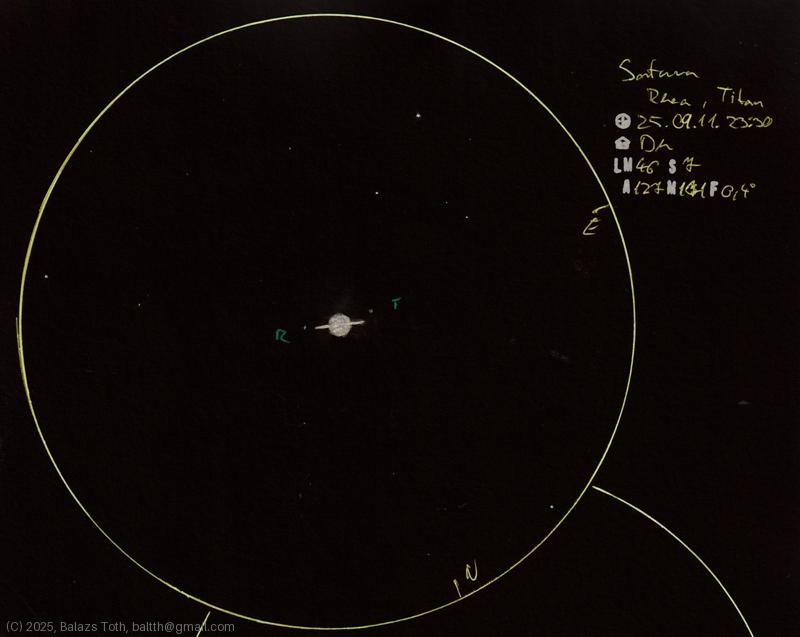 Saturn
Rhea, Titan
25.09.11. 23:30
LM 46 S 7
A 127 M 191 F 0,4°
E
T
R
N
(C) 2025, Balazs Toth, baltth@gmail.com